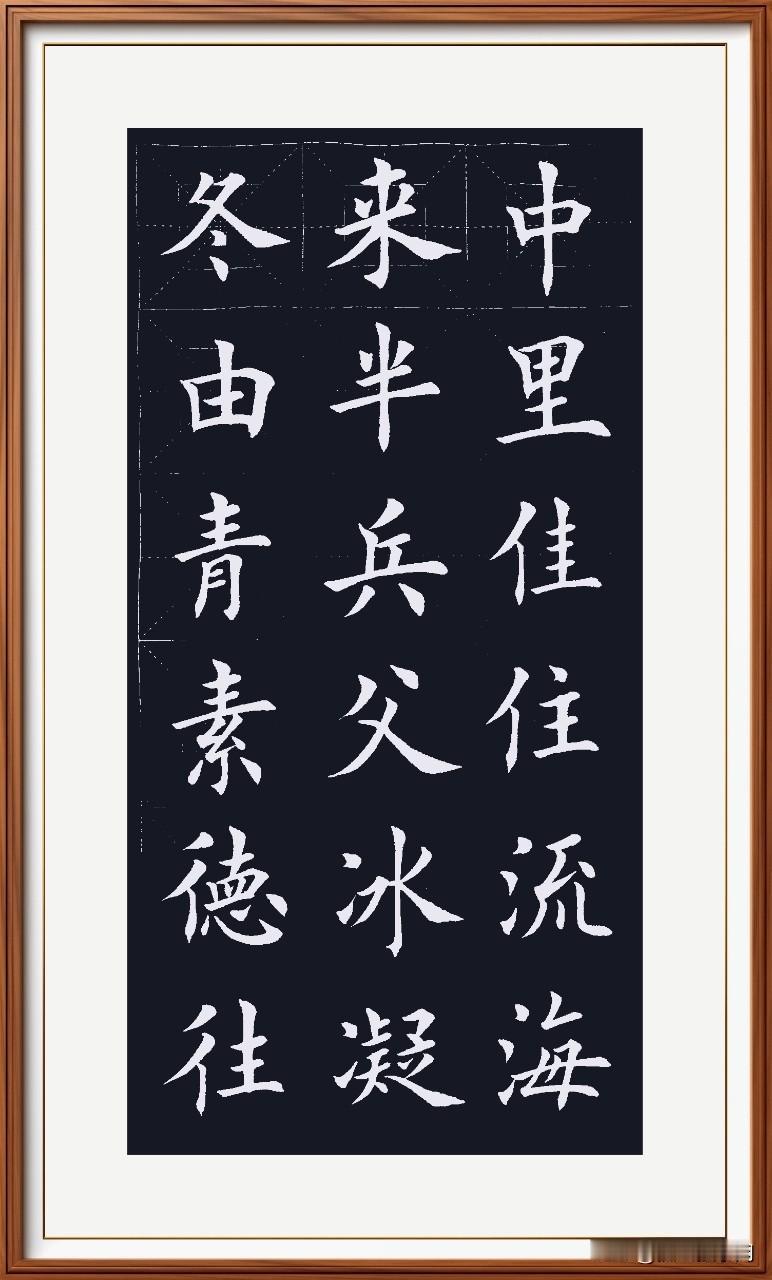 中里佳住流海
来半兵父冰凝
冬由青素德往